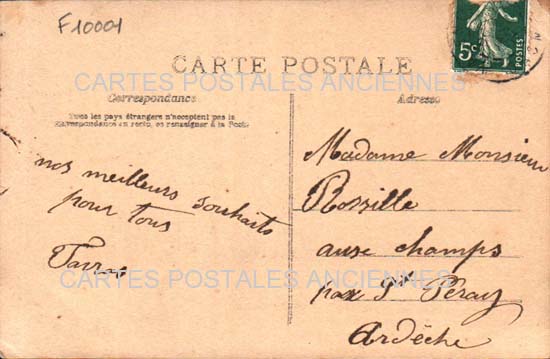 F10001
5c
POSTES
CARTE POSTALE
CARTES POSTALES ANCIENNES
Correspondance
Tous les pays étrangers n'acceptent pas la
correspondance au recto, se renseigner à la Poste
Adresse
nos meilleurs souhaits
pour tous
Madame Monsieur
Rossille
ause champs
par St Péray
Ardèche
CARTES POSTALES ANCIENNES